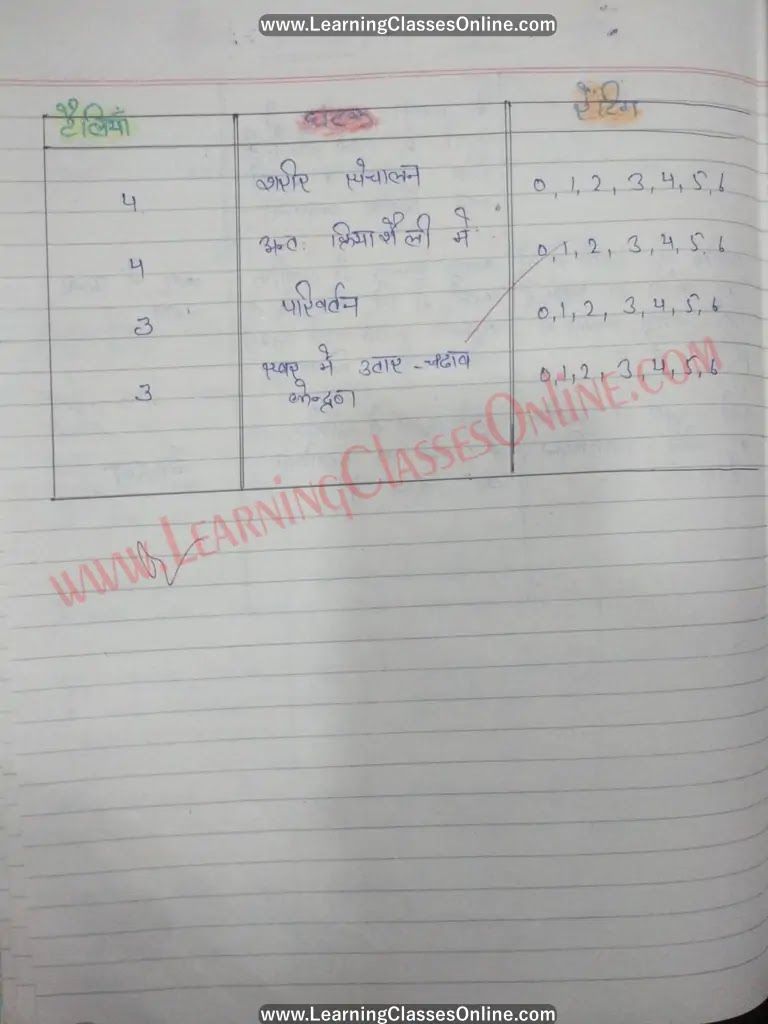 www.LearningClassesOnline.com
टैलियाँ घटक रेटिंग
4 शरीर संचालन 0, 1, 2, 3, 4, 5, 6
4 अन्तः क्रियाशैली में 0, 1, 2, 3, 4, 5, 6
3 परिवर्तन 0, 1, 2, 3, 4, 5, 6
3 स्वर में उतार-चढाव 0, 1, 2, 3, 4, 5, 6
केन्द्रण
www.LearningClassesOnline.com
www.LearningClassesOnline.com